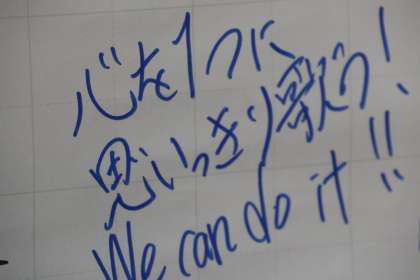 心を1つに
思いっきり歌う!
We can do it!!